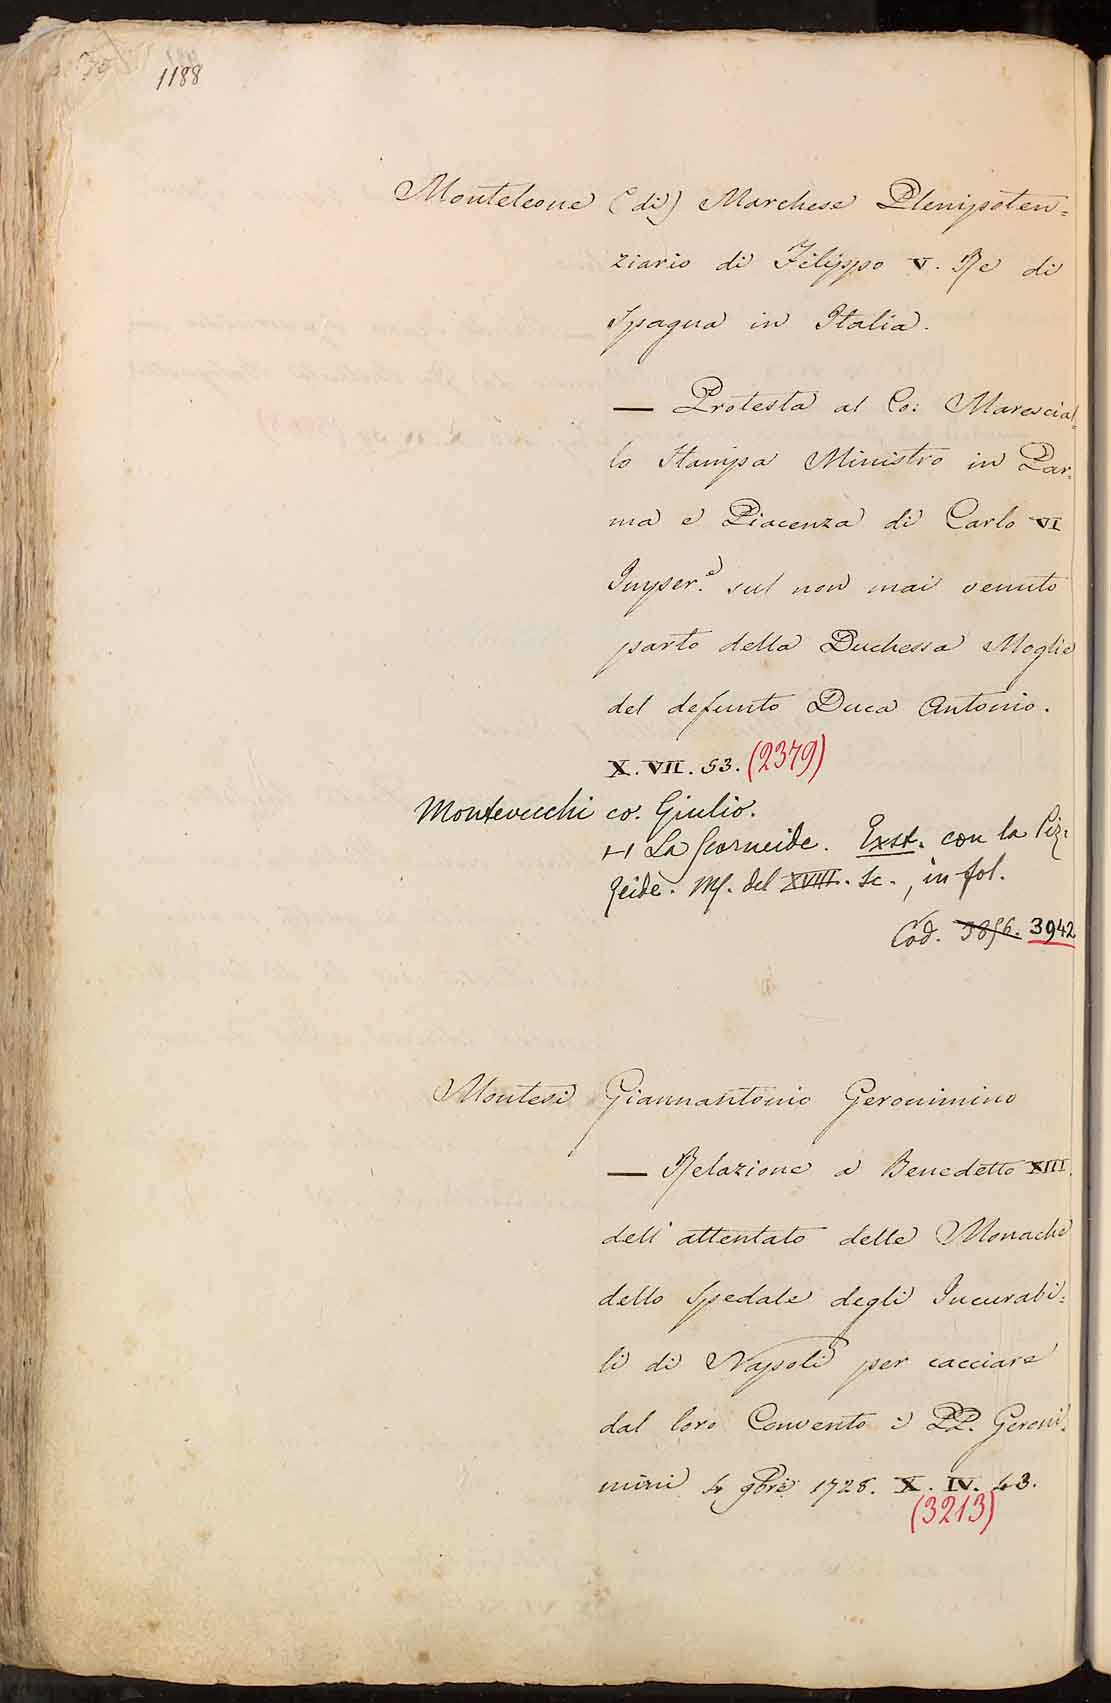 1188
Monteleone (di) Marchese Plenipoten=
ziario di Filippo V. Re di
Spagna in Italia.
— Protesta al Co: Marescial=
lo Stampa Ministro in Par=
ma e Piacenza di Carlo VI
Imper.e sul non mai venuto
parto della Duchessa Moglie
del defunto Duca Antonio.
X. VII. 53. (2379)
Montevecchi co. Giulio.
La Corneide. Exst. con la Piz=
zeide. Ms. del XVIII. Sc., in fol.
Cod. 3856. 3942
Montesi Giannantonio Geronimino
— Relazione a Benedetto XIII.
dell'attentato delle Monache
dello Spedale degli Incurabi=
li di Napoli per cacciare
dal loro Convento i PP. Geroni=
mini 4 9bre 1728. X. IV. 43.
(3213)